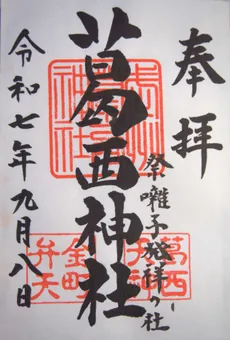 奉拝
祭囃子発祥の社
葛西神社
令和七年九月八日
葛西
金町
弁天